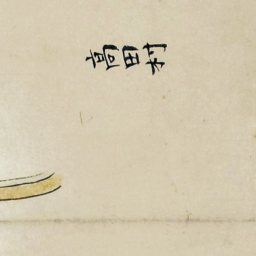 高田村